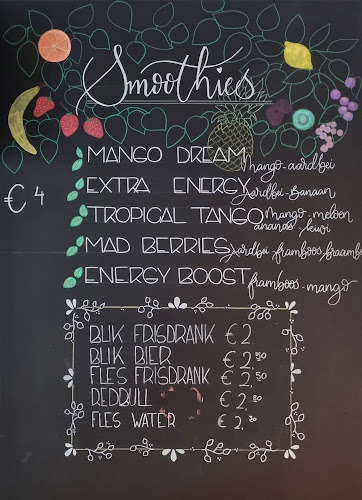 Smoothies
MANGO DREAM mango-aardbei
€ 4
EXTRA ENERGY aardbei-banaan
TROPICAL TANGO mango-meloen
ananas-kiwi
MAD BERRIES aardbei-framboos-braambe
ENERGY BOOST framboos-mango
BLIK FRISDRANK € 2,
BLIK BIER € 2,50
FLES FRISDRANK € 2,50
REDBULL € 2,50
FLES WATER € 2,